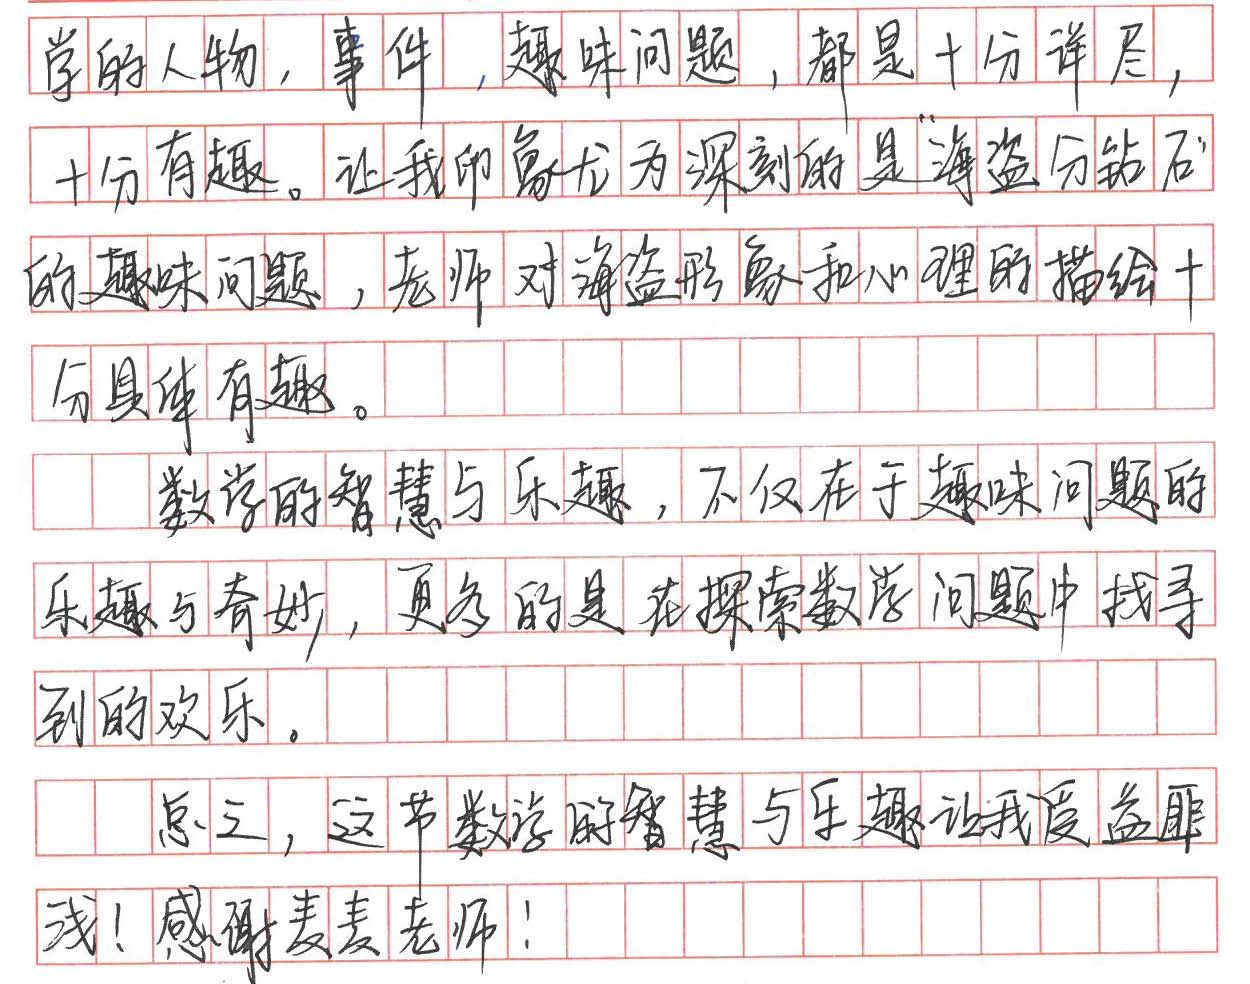 学的人物，事件，趣味问题，都是十分详尽，
十分有趣。让我印象尤为深刻的是“海盗分钻石”
的趣味问题，老师对海盗形象和心理的描绘十
分具体有趣。
数学的智慧与乐趣，不仅在于趣味问题的
乐趣与奇妙，更多的是在探索数学问题中找寻
到的欢乐。
总之，这节数学的智慧与乐趣让我受益匪
浅！感谢麦麦老师！